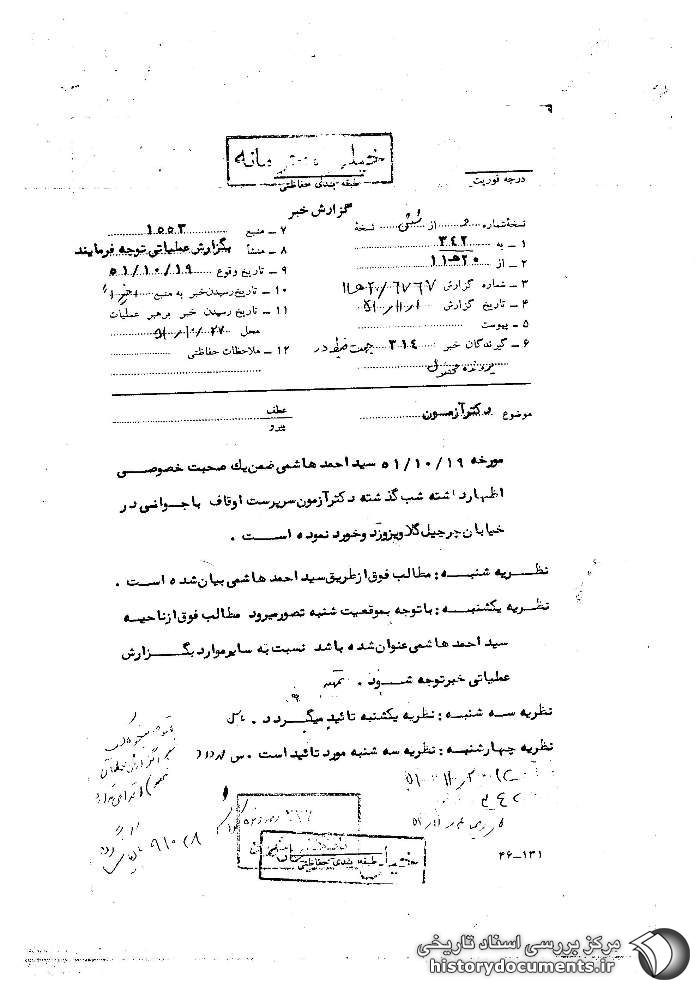 خیلی محرمانه
طبقه بندی حفاظتی
درجه فوریت
گزارش خبر
نسخهٔ شماره از شش نسخهٔ
۱ ـ به ۳۴۲
۲ ـ از ۲۰هـ۱۱
۳ ـ شماره گزارش ۲۰/۶۷۶۷هـ۱۱
۴ ـ تاریخ گزارش ۵۱/۱۱/۱
۵ ـ پیوست
۶ ـ گیرندگان خبر ۳۱۴ جهت ضبط در
پرونده محصول
۷ ـ منبع ۱۵۵۳
۸ ـ منشأ بگزارش عملیاتی توجه فرمایند
۹ ـ تاریخ وقوع ۵۱/۱۰/۱۹
۱۰ ـ تاریخ رسیدن خبر به منبع
۱۱ ـ تاریخ رسیدن خبر برهبر عملیات
محل ۵۱/۱۰/۲۷
۱۲ ـ ملاحظات حفاظتی
موضوع دکتر آزمون
عطف
پیرو
مورخه ۵۱/۱۰/۱۹ سید احمد هاشمی ضمن یك صحبت خصوصی
اظهار داشته شب گذشته دکتر آزمون سرپرست اوقاف با جوانی در
خیابان چرچیل گلاویز و زد وخورد نموده است .
نظریه شنبه : مطالب فوق از طریق سید احمد هاشمی بیان شده است .
نظریه یکشنبه : با توجه بموقعیت شنبه تصور میرود مطالب فوق از ناحیه
سید احمد هاشمی عنوان شده باشد نسبت به سایر موارد بگزارش
عملیاتی خبر توجه شود .
نظریه سه شنبه : نظریه یکشنبه تائید میگردد .
نظریه چهارشنبه : نظریه سه شنبه مورد تائید است .
طبقه بندی حفاظتی
۴۶-۱۳۱
مرکز بررسی اسناد تاریخی
historydocuments.ir